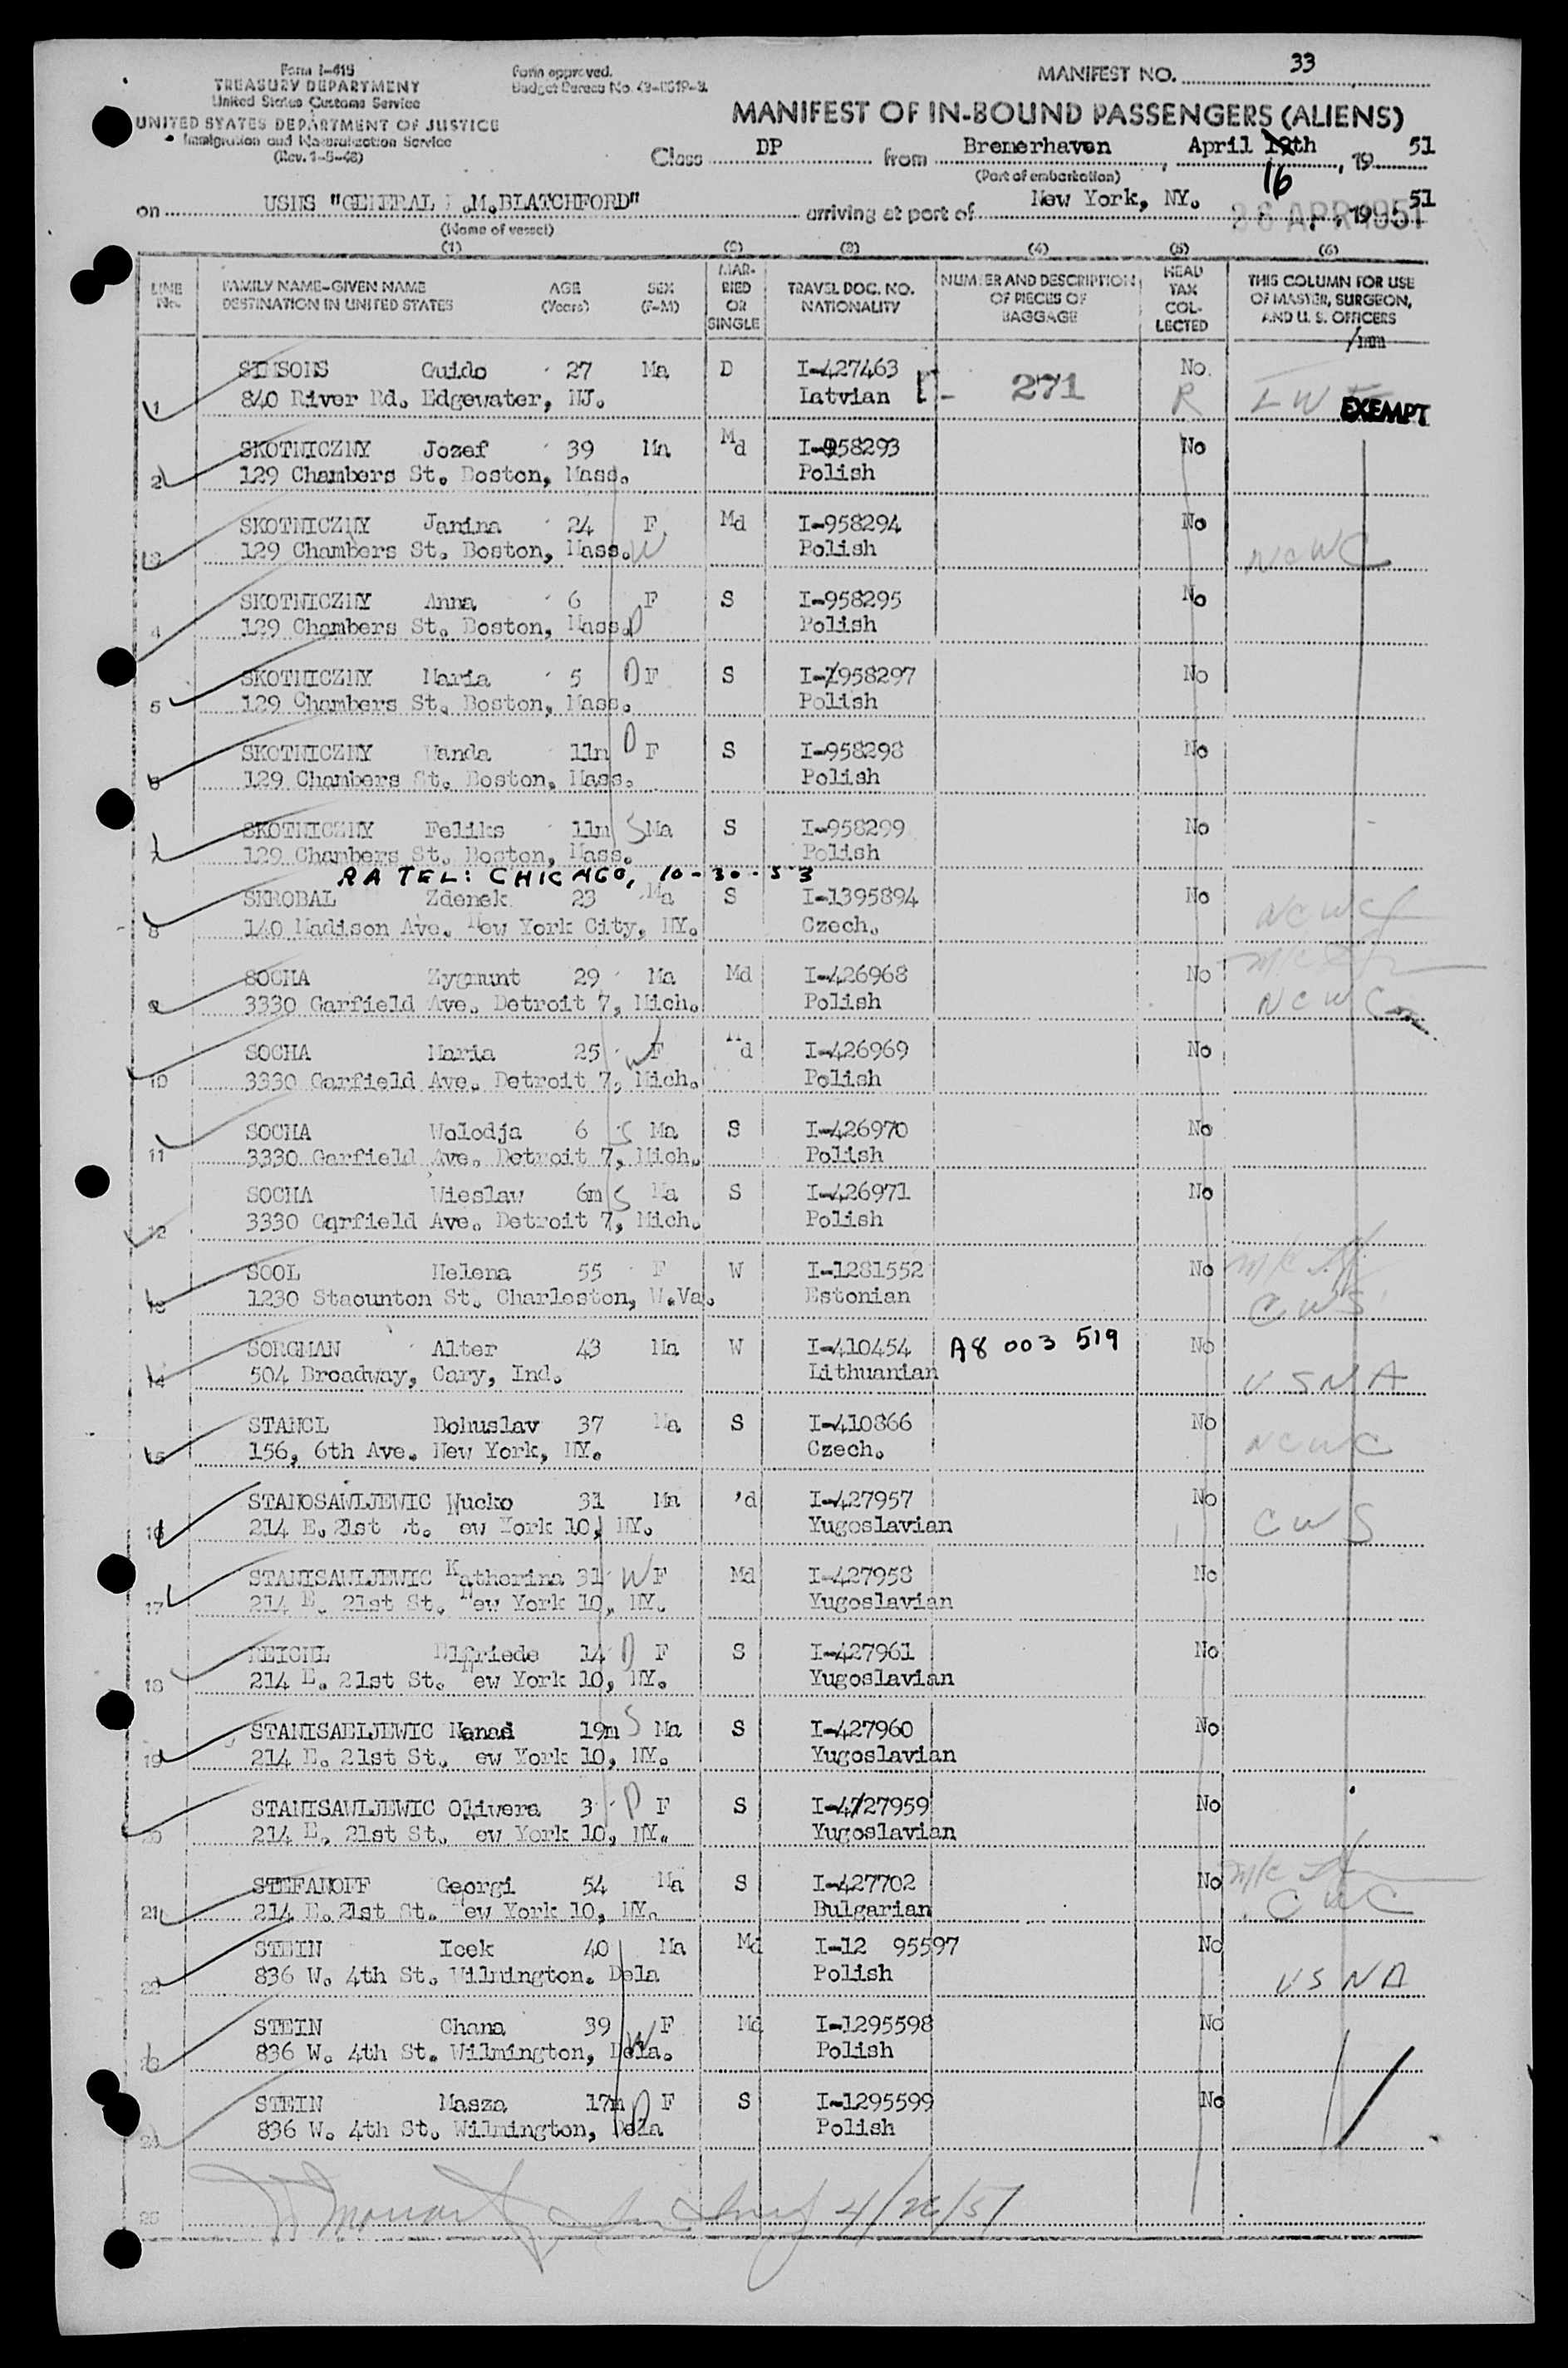 Form I-415
TREASURY DEPARTMENT
United States Customs Service
UNITED STATES DEPARTMENT OF JUSTICE
Immigration and Naturalization Service
(Rev. 1-5-48)
Form approved.
Budget Bureau No. 43-R519-3.
MANIFEST NO. 33
MANIFEST OF IN-BOUND PASSENGERS (ALIENS)
Class DP from Bremerhaven, April 12th 16, 19 51
(Port of embarkation)
on USNS "GENERAL .M.BLATCHFORD" arriving at port of New York, NY. 26 APR 1951, 19 51
(Name of vessel)
(1) (2) (3) (4) (5) (6)
LINE No. FAMILY NAME-GIVEN NAME DESTINATION IN UNITED STATES AGE (Years) SEX (F-M) MARRIED OR SINGLE TRAVEL DOC. NO. NATIONALITY NUMBER AND DESCRIPTION OF PIECES OF BAGGAGE HEAD TAX COLLECTED THIS COLUMN FOR USE OF MASTER, SURGEON, AND U. S. OFFICERS
/mm
1 SIMSONS Guido 27 Ma D I-427463 271 No.
840 River Rd. Edgewater, NJ. Latvian R LW EXEMPT
2 SKOTNICZNY Jozef 39 Ma Md I-958293 No
129 Chambers St. Boston, Mass. Polish
3 SKOTNICZNY Janina 24 F. Md I-958294 No
129 Chambers St. Boston, Mass. W Polish NCWC
4 SKOTNICZNY Anna 6 F S I-958295 No
129 Chambers St. Boston, Mass. D Polish
5 SKOTNICZNY Maria 5 D F S I-958297 No
129 Chambers St. Boston, Mass. Polish
6 SKOTNICZNY Wanda 11m D F S I-958298 No
129 Chambers St. Boston, Mass. Polish
7 SKOTNICZNY Feliks 11m S Ma S I-958299 No
129 Chambers St. Boston, Mass. Polish
RA TEL: CHICAGO, 10-30-53
8 SKROBAL Zdenek 23 Ma S I-1395894 No
140 Madison Ave. New York City, NY. Czech. NCWC
9 SOCHA Zygmunt 29 Ma Md I-426968 No M/C
3330 Garfield Ave. Detroit 7, Mich. Polish NCWC
10 SOCHA Maria 25 W F Md I-426969 No
3330 Garfield Ave. Detroit 7, Mich. Polish
11 SOCHA Wolodja 6 S Ma S I-426970 No
3330 Garfield Ave. Detroit 7, Mich. Polish
12 SOCHA Wieslaw 6m S Ma S I-426971 No
3330 Gqrfield Ave. Detroit 7, Mich. Polish
13 SOOL Helena 55 F W I-1281552 No M/C
1230 Staounton St. Charleston, W.Va. Estonian CWS
14 SORGMAN Alter 43 Ma W I-410454 A8 003 519 No
504 Broadway, Gary, Ind. Lithuanian USNA
15 STANCL Bohuslav 37 Ma S I-410866 No
156, 6th Ave. New York, NY. Czech. NCWC
16 STANOSAWIJEWIC Wucko 31 Ma 'd I-427957 No
214 E. 21st t. ew York 10, NY. Yugoslavian CWS
17 STANISAWIJEWIC Katherina 31 W F Md I-427958 No
214 E. 21st St. New York 10, NY. Yugoslavian
18 REICHL Elfriede 14 D F S I-427961 No
214 E. 21st St. New York 10, NY. Yugoslavian
19 STANISAEIJEWIC Nanad 19m S Ma S I-427960 No
214 E. 21st St. ew York 10, NY. Yugoslavian
20 STANISAWIJEWIC Oliwera 3 D F S I-4/27959 No
214 E. 21st St. ew York 10, NY. Yugoslavian
21 STEFANOFF Georgi 54 Ma S I-427702 No M/C
214 E. 21st St. New York 10, NY. Bulgarian CWC
22 STEIN Icek 40 Ma Md I-12 95597 No
836 W. 4th St. Wilmington. Dela Polish USNA
23 STEIN Chana 39 F Md I-1295598 No
836 W. 4th St. Wilmington, Dela. W Polish
24 STEIN Masza 17m D F S I-1295599 No
836 W. 4th St. Wilmington, Dela Polish
25 4/26/51